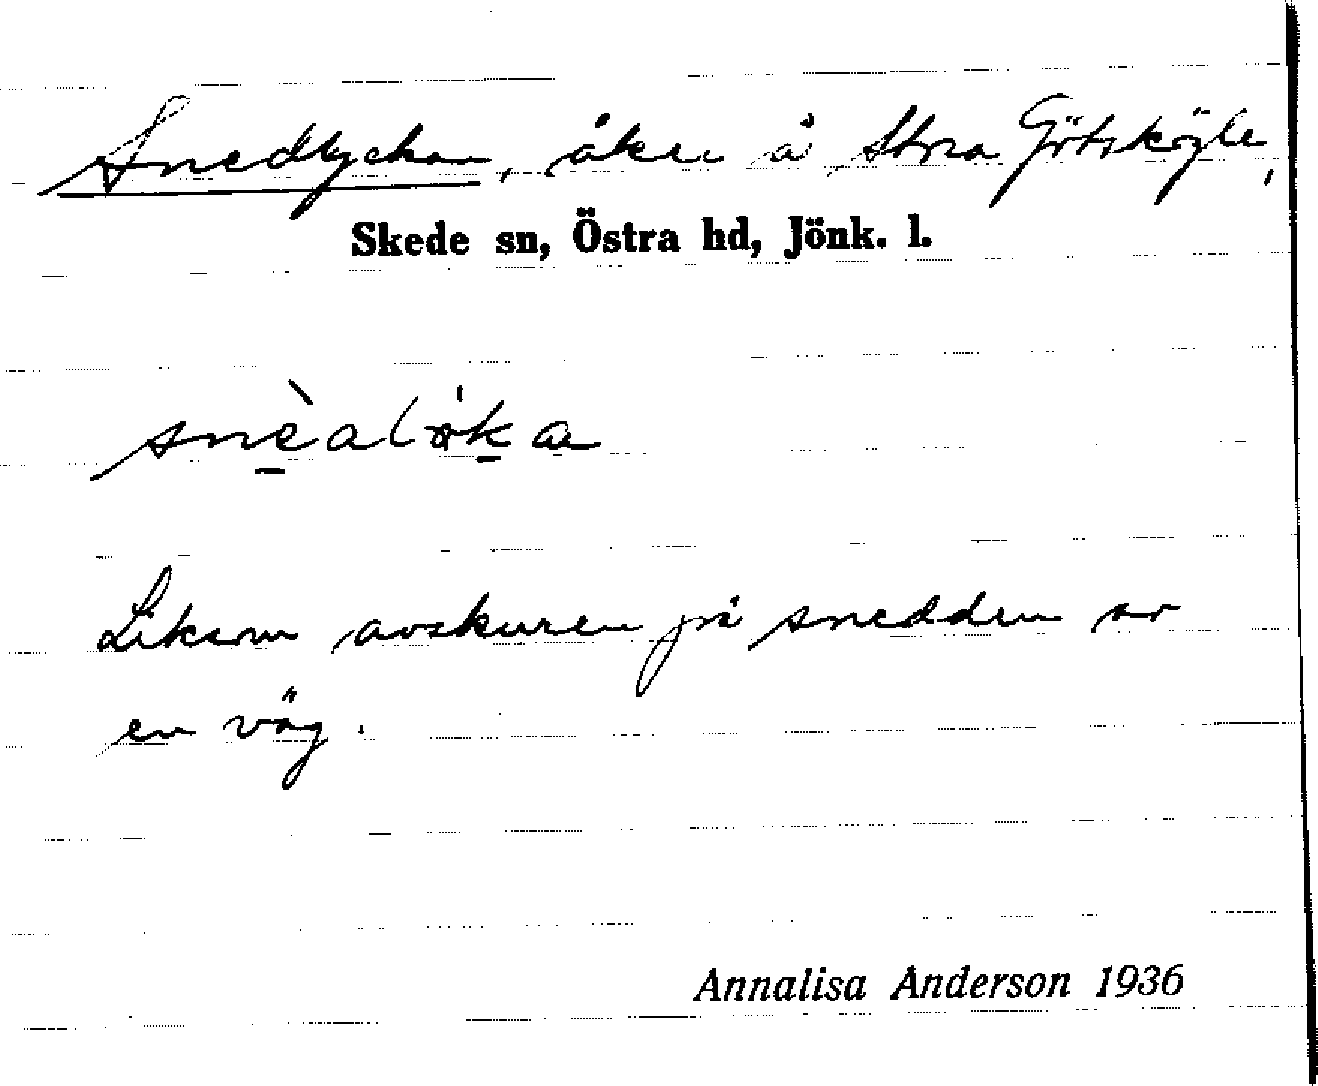 Snedlyckan, åker å Stora Götsköyle,
Skede sn, Östra hd, Jönk. l.
Liksom avskuren på snedden av
en väg.
Annalisa Anderson 1936